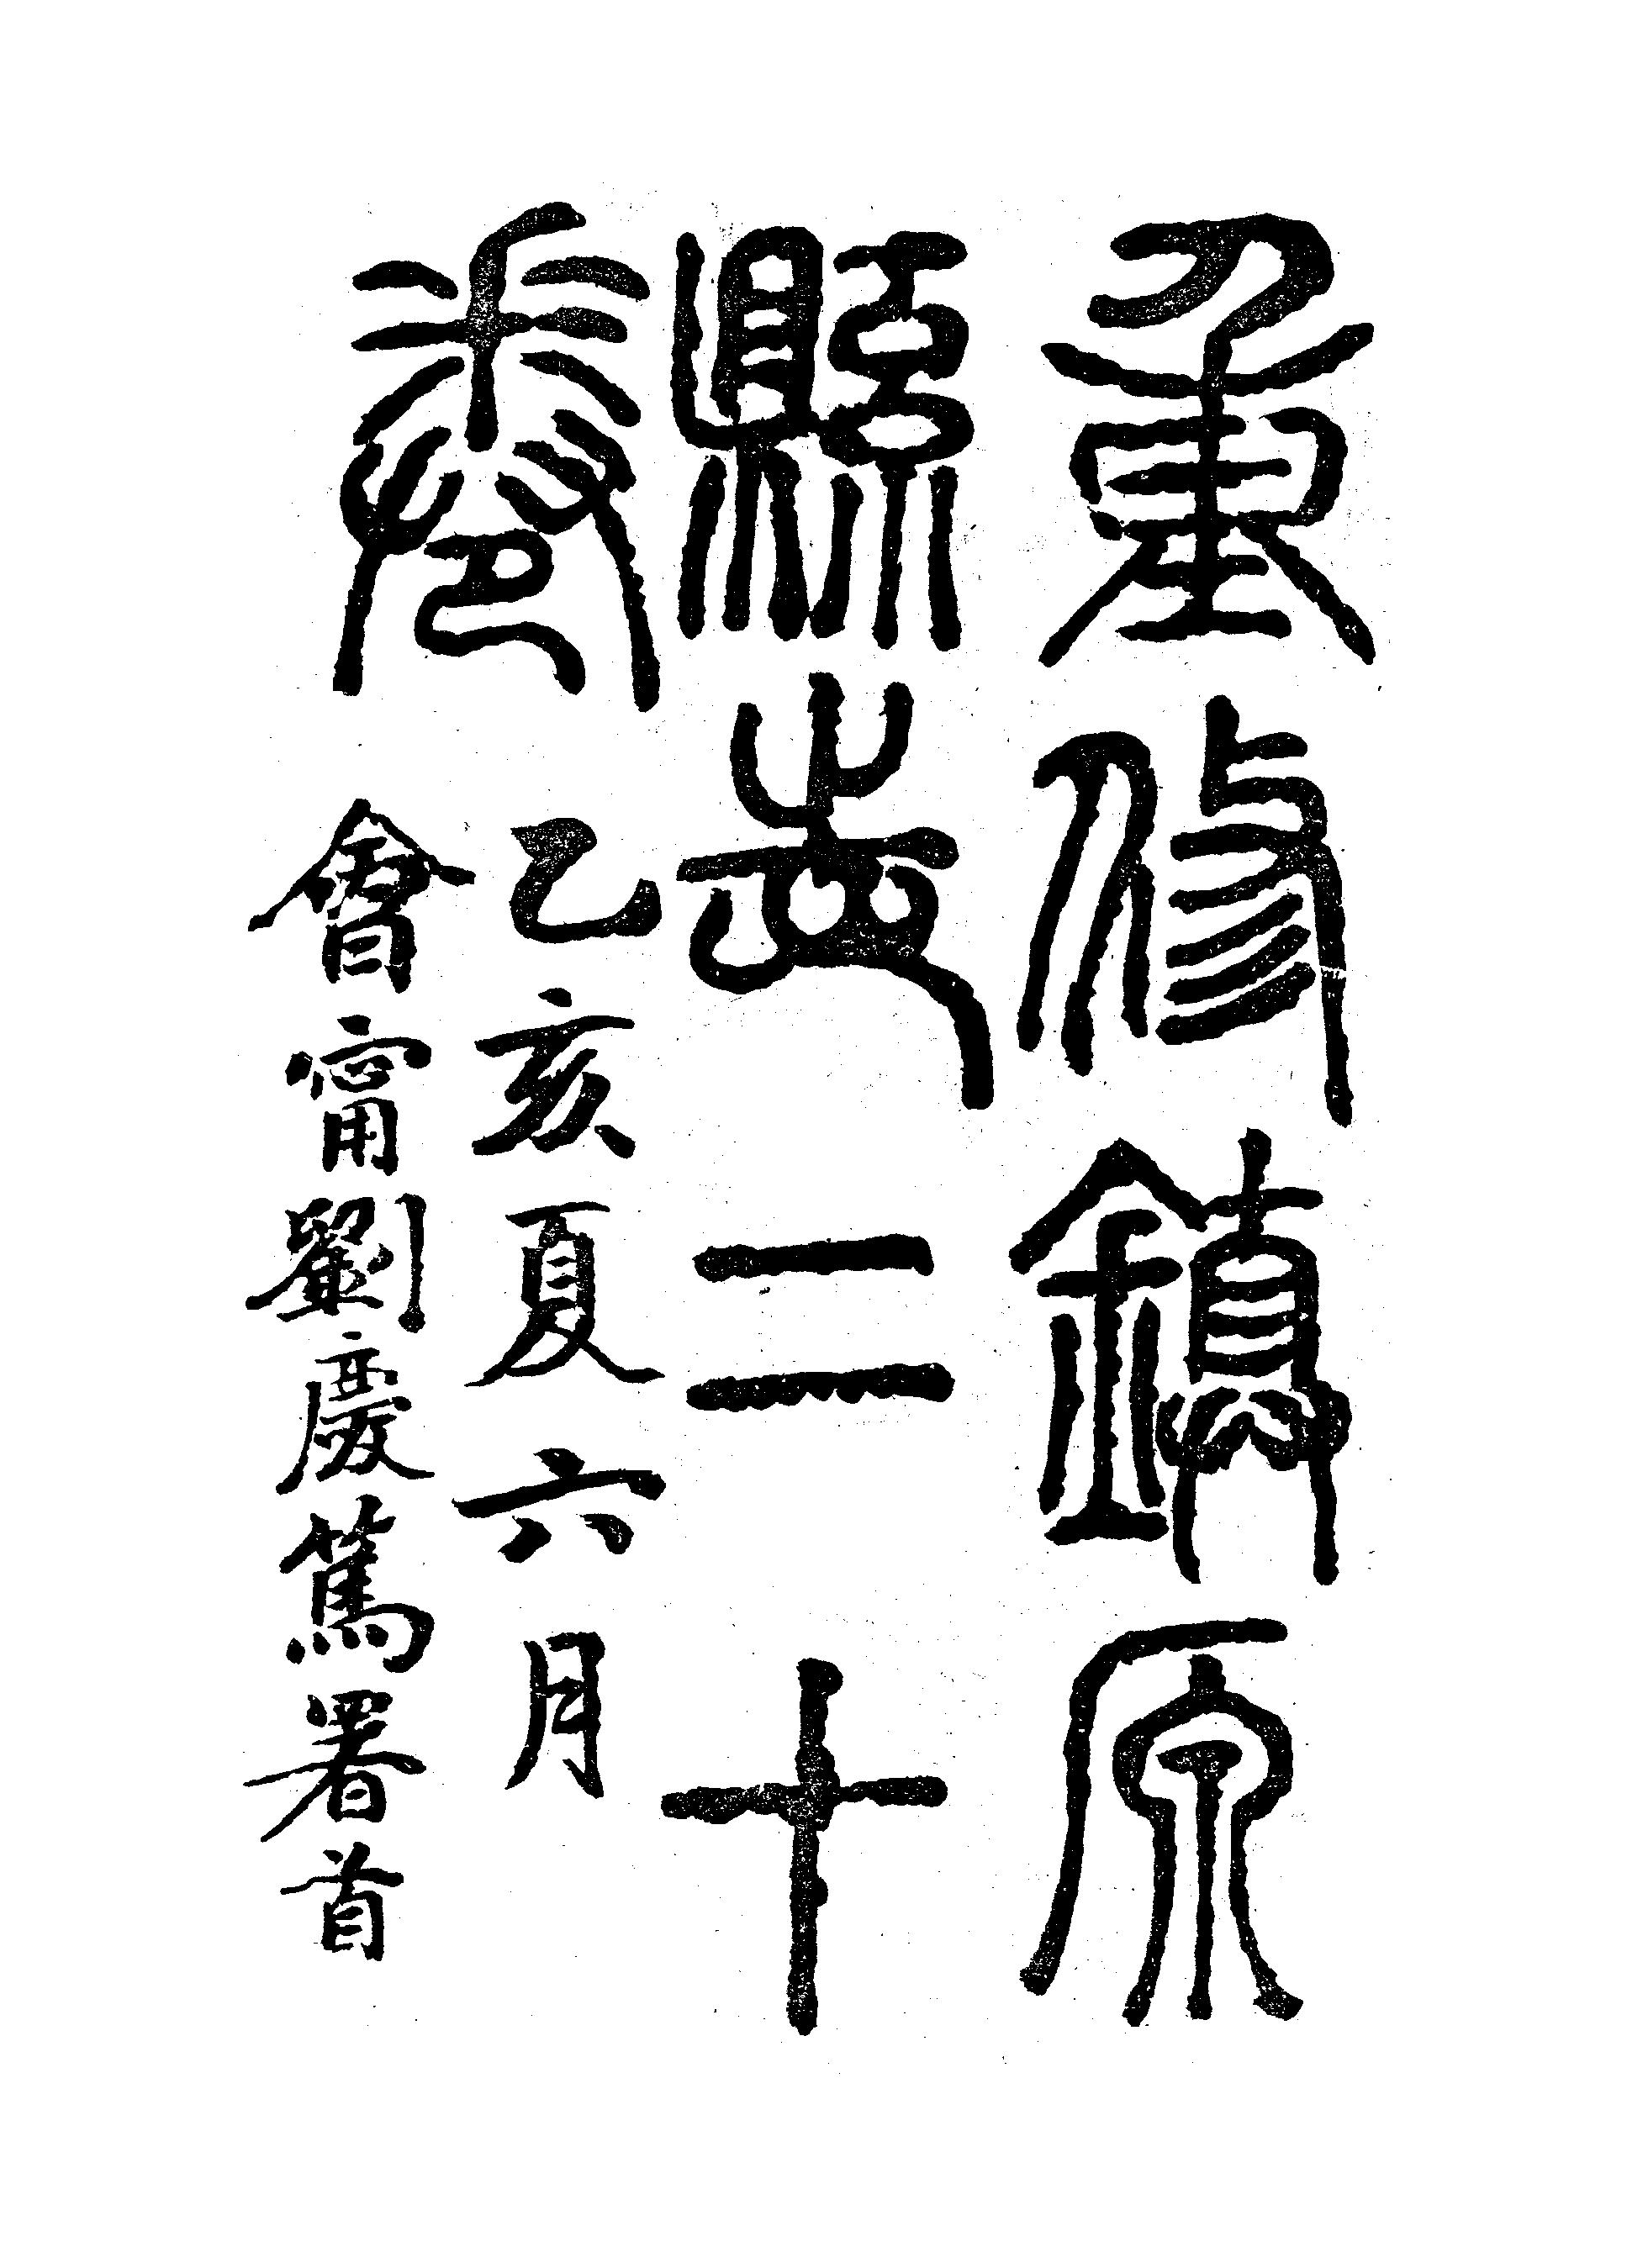 重修鎮原
縣志二十
卷
乙亥夏六月
會甯劉慶篤署首